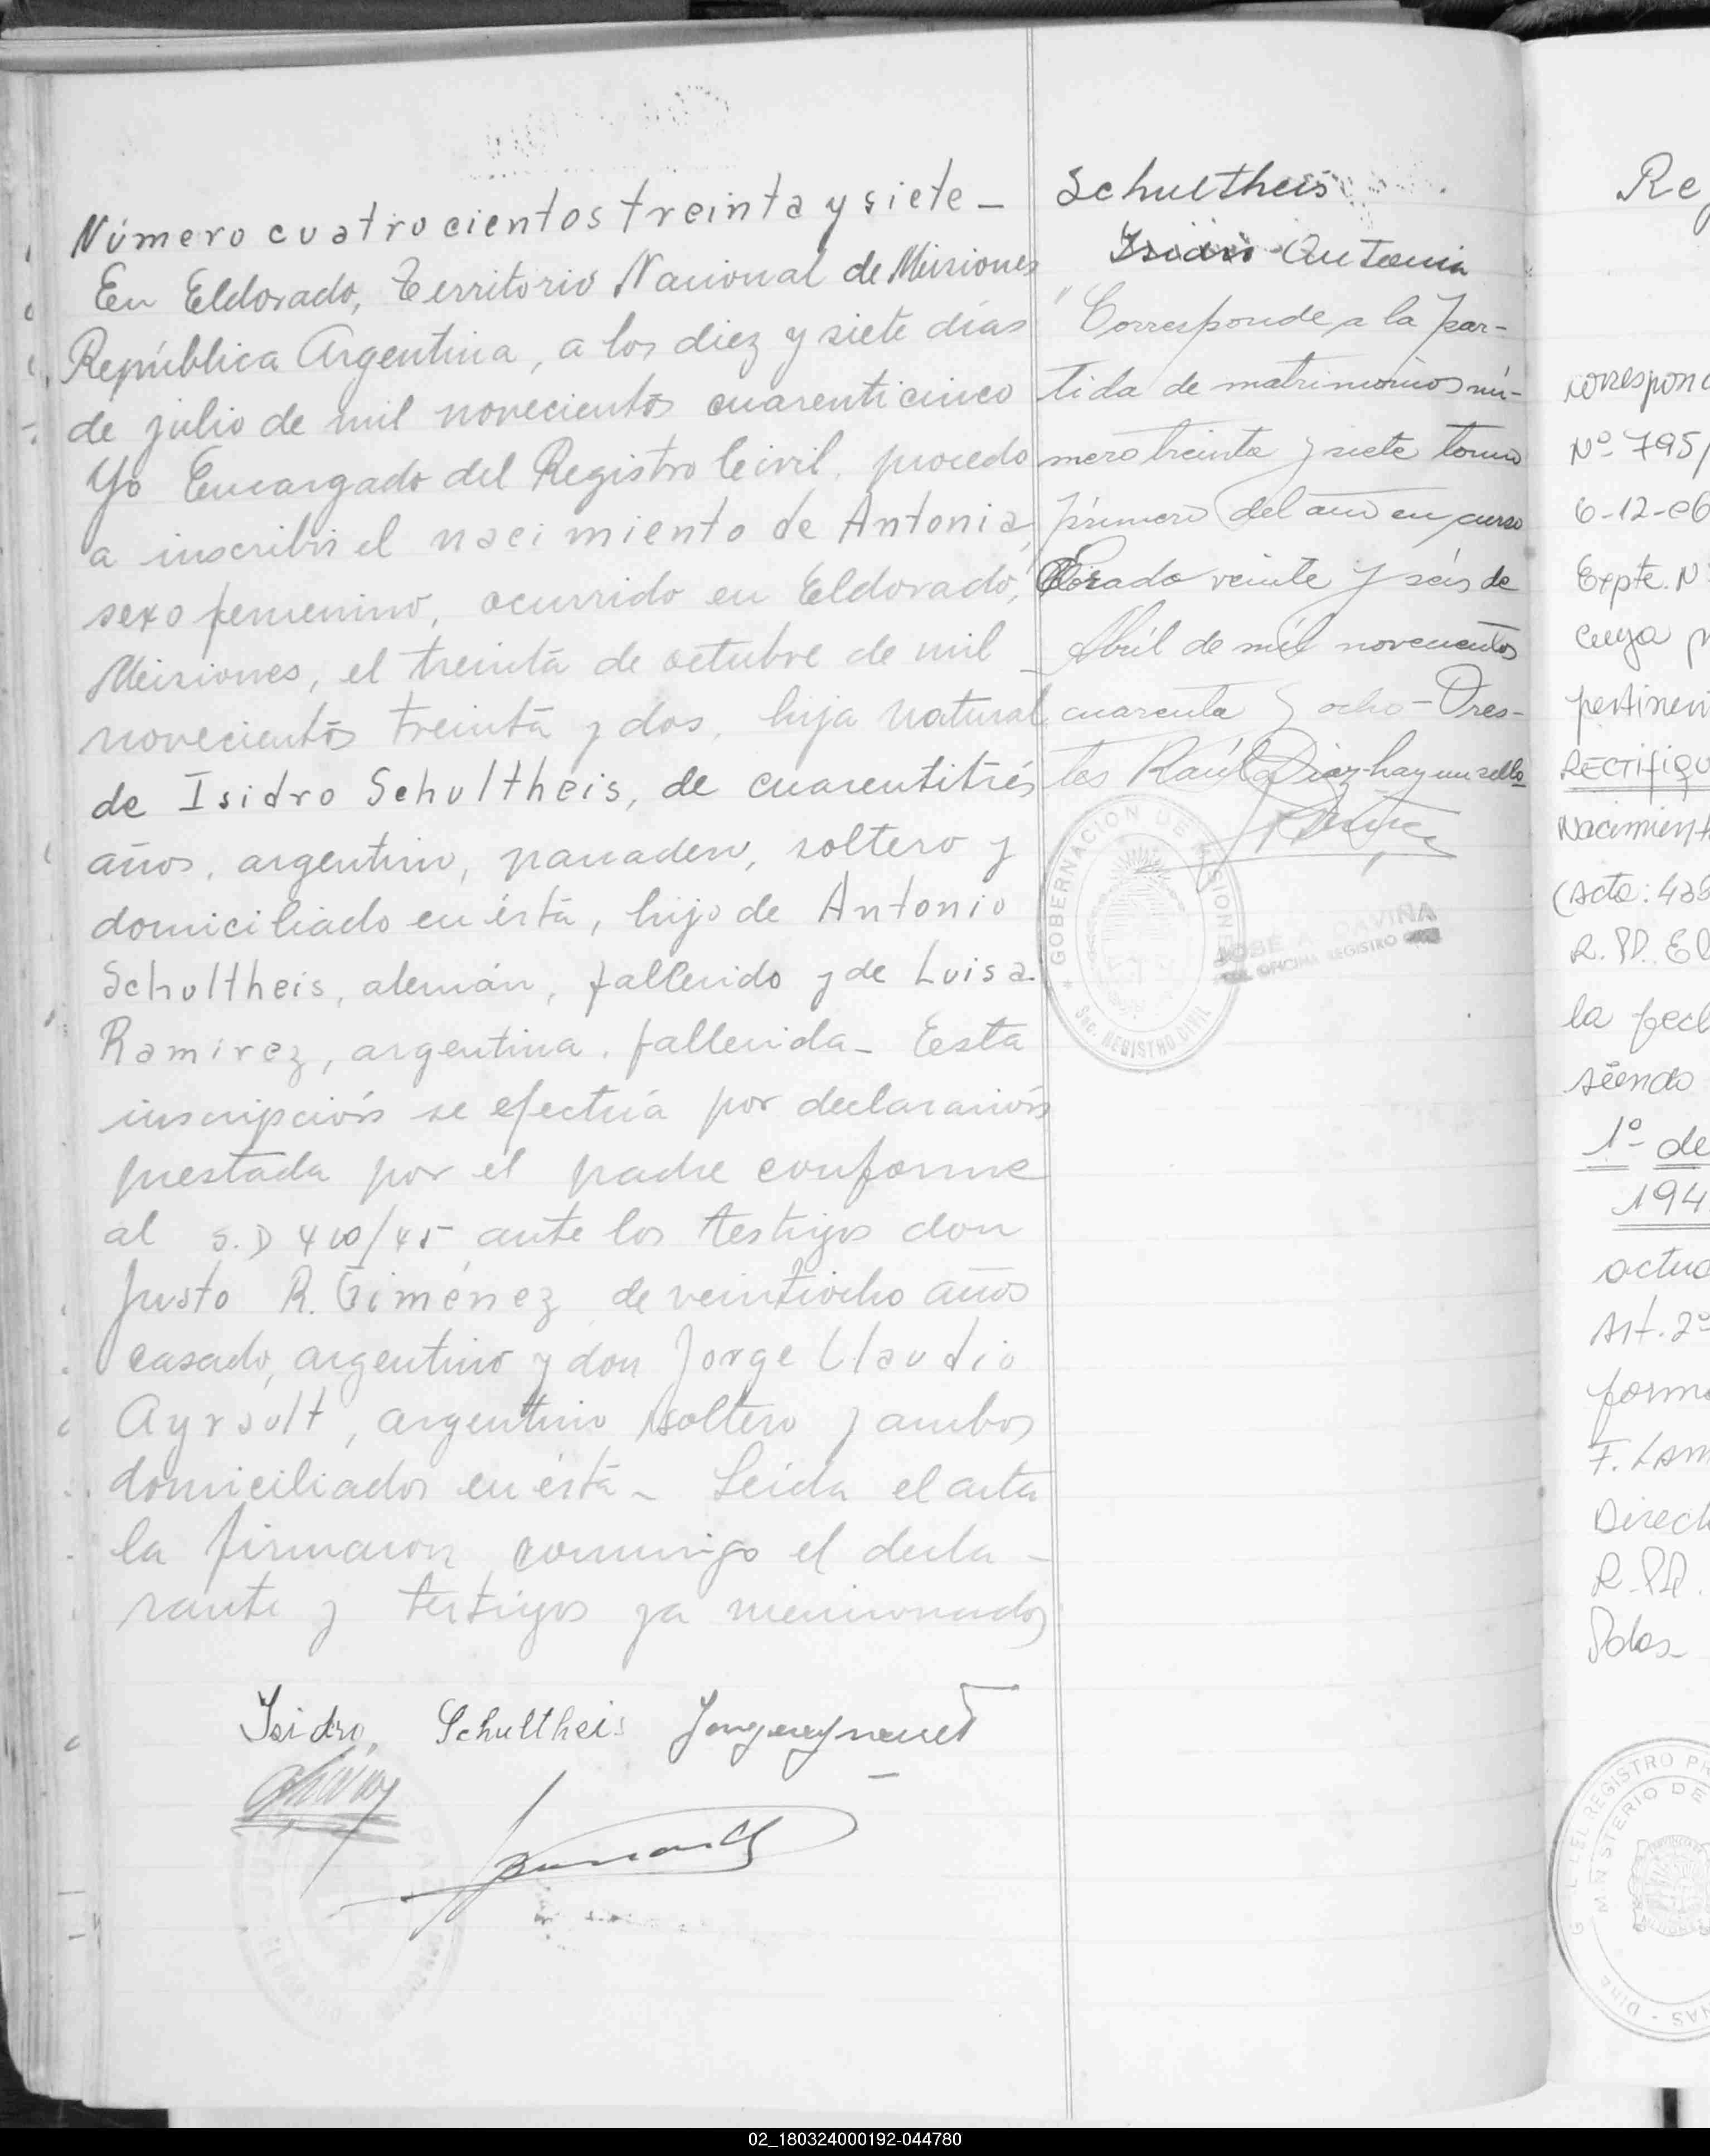 Número cuatrocientos treinta y siete -
En Eldorado, Territorio Nacional de Misiones
República Argentina, a los diez y siete días
de julio de mil novecientos cuarenticinco
Yo Encargado del Registro Civil, procedo
a inscribir el nacimiento de Antonia,
sexo femenino, ocurrido en Eldorado,
Misiones, el treinta de octubre de mil
novecientos treinta y dos, hija natural
de Isidro Schultheis, de cuarentitrés
años, argentino, panadero, soltero y
domiciliado en ésta, hijo de Antonio
Schultheis, alemán, fallecido y de Luisa
Ramirez, argentina, fallecida - Esta
inscripción se efectúa por declaración
prestada por el padre conforme
al S.D 410/45 ante los testigos don
Justo R. Giménez de veintiocho años
casado, argentino y don Jorge Claudio
Ayrault, argentino soltero y ambos
domiciliados en ésta - Leída el acta
la firmaron conmigo el decla-
rante y testigos ya mencionados
Isidro Schultheis
Schultheis
Isidro Antonia
"Corresponde a la par-
tida de matrimonios nú-
mero treinta y siete tomo
primero del año en curso
veinte y seis de
Abril de mil novecientos
cuarenta y ocho - Ores-
tes Raúl Diaz - hay un sello
GOBERNACION DE MISIONES
Sec. REGISTRO CIVIL
JOSE A. DAVIÑA
OFICINA REGISTRO
Re
correspon
Nº 795/
6-12-06
Expte. N
cuya
pertinen
RECTIFIQU
Nacimient
(Acta: 43
R. PP. El
la fech
siendo
1º de
194
actua
Art. 2º
forma
F. Lam
Direct
R. PP.
Pdas-
REGISTRO PR
MINISTERIO DE
02_180324000192-044780